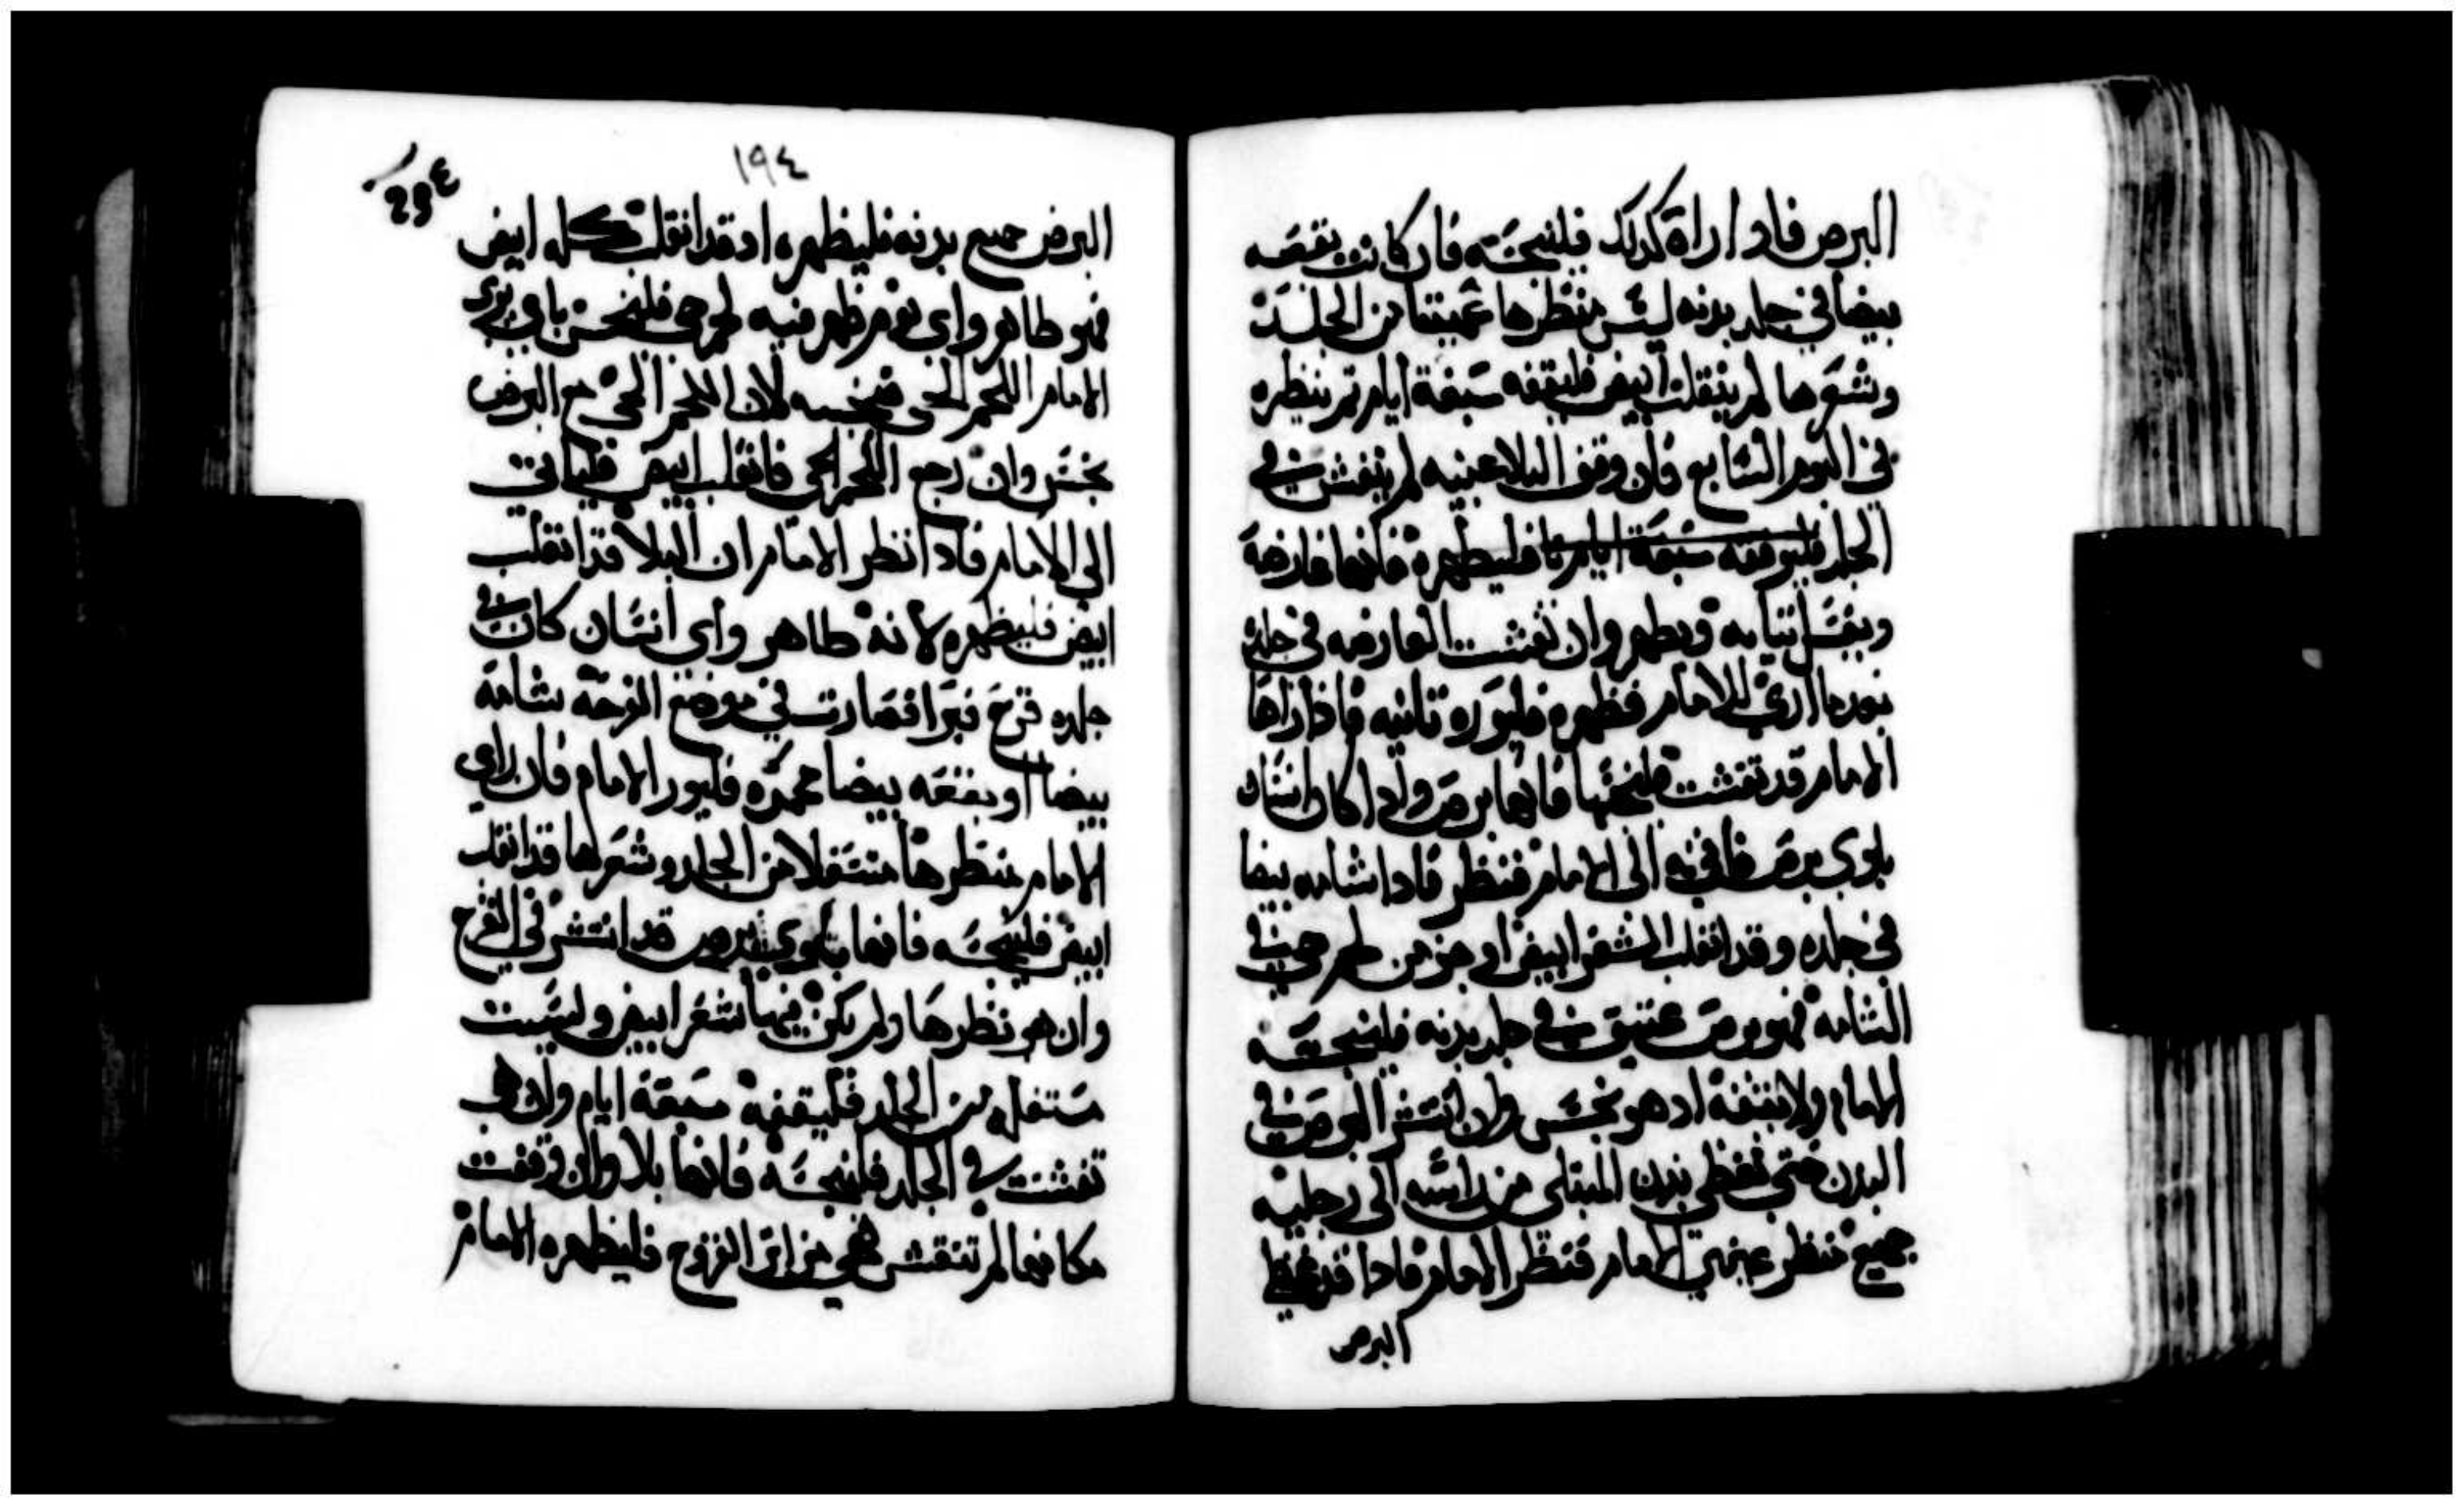 البرص فاذا راه كذلك فلينجسه فان كانت بقعه
بيضا في جلد بدنه ليس منظرها عميقا من الجلد
وشعرها لم ينقلب ابيض فليقفه سبعة ايام ثم ينظره
في اليوم السابع فان وقف البلا عينيه لم يتفش في
الجلد فليوقفه سبعة ايام فليطهره فانها عارضة
ويغسل ثيابه ويطهر وان تفشت العارضه في جلده
بعد ما اري للامام فطهره فليوره ثانيه فاذا راها
الامام قد تفشت فلينجسها فانها برص واذا كان انسان
بلوي برص فافي به الى الامام فنظر فاذا شامه بيضا
في جلده وقد انقلب الشعر ابيض او جز من لحم حي في
الشامه فهو برص عتيق في جلد بدنه فلينجسه
الامام ولا يقفه اذ هو نجس وان انتشر البرص في
البدن حتى تغطي بدن المبتلى من راسه الى رجليه
جميع منظر عيني الامام فنظر الامام فاذا قد غطى
البرص
١٩٤
البرص جميع بدنه فليطهره اذ قد انقلب كله ابيض
فهو طاهر واي يوم ظهر فيه لحم حي فلينجس باي يري
الامام اللحم الحي فينجسه لان اللحم الحي مع البرص
نجس وان رجع اللحم الحي فانقلب ابيض فلياتي
الى الامام فاذا نظر الامام ان البلا قد انقلب
ابيض فليطهره لانه طاهر واي انسان كان في
جلده قرح فبرا فصارت في موضع القرحه شامة
بيضا او بقعه بيضا محمره فليور الامام فان راي
الامام منظرها مستفلا من الجلد وشعرها قد انقلب
ابيض فلينجسه فانها بلوي برص قد انتشر في القرح
وان هو نظرها ولم يكن فيها شعر ابيض وليست
مستفله من الجلد فليقفه سبعة ايام وان هي
تفشت في الجلد فلينجسه فانها بلا وان وقفت
مكانها لم تتفش فهي من اثر القروح فليطهره الامام